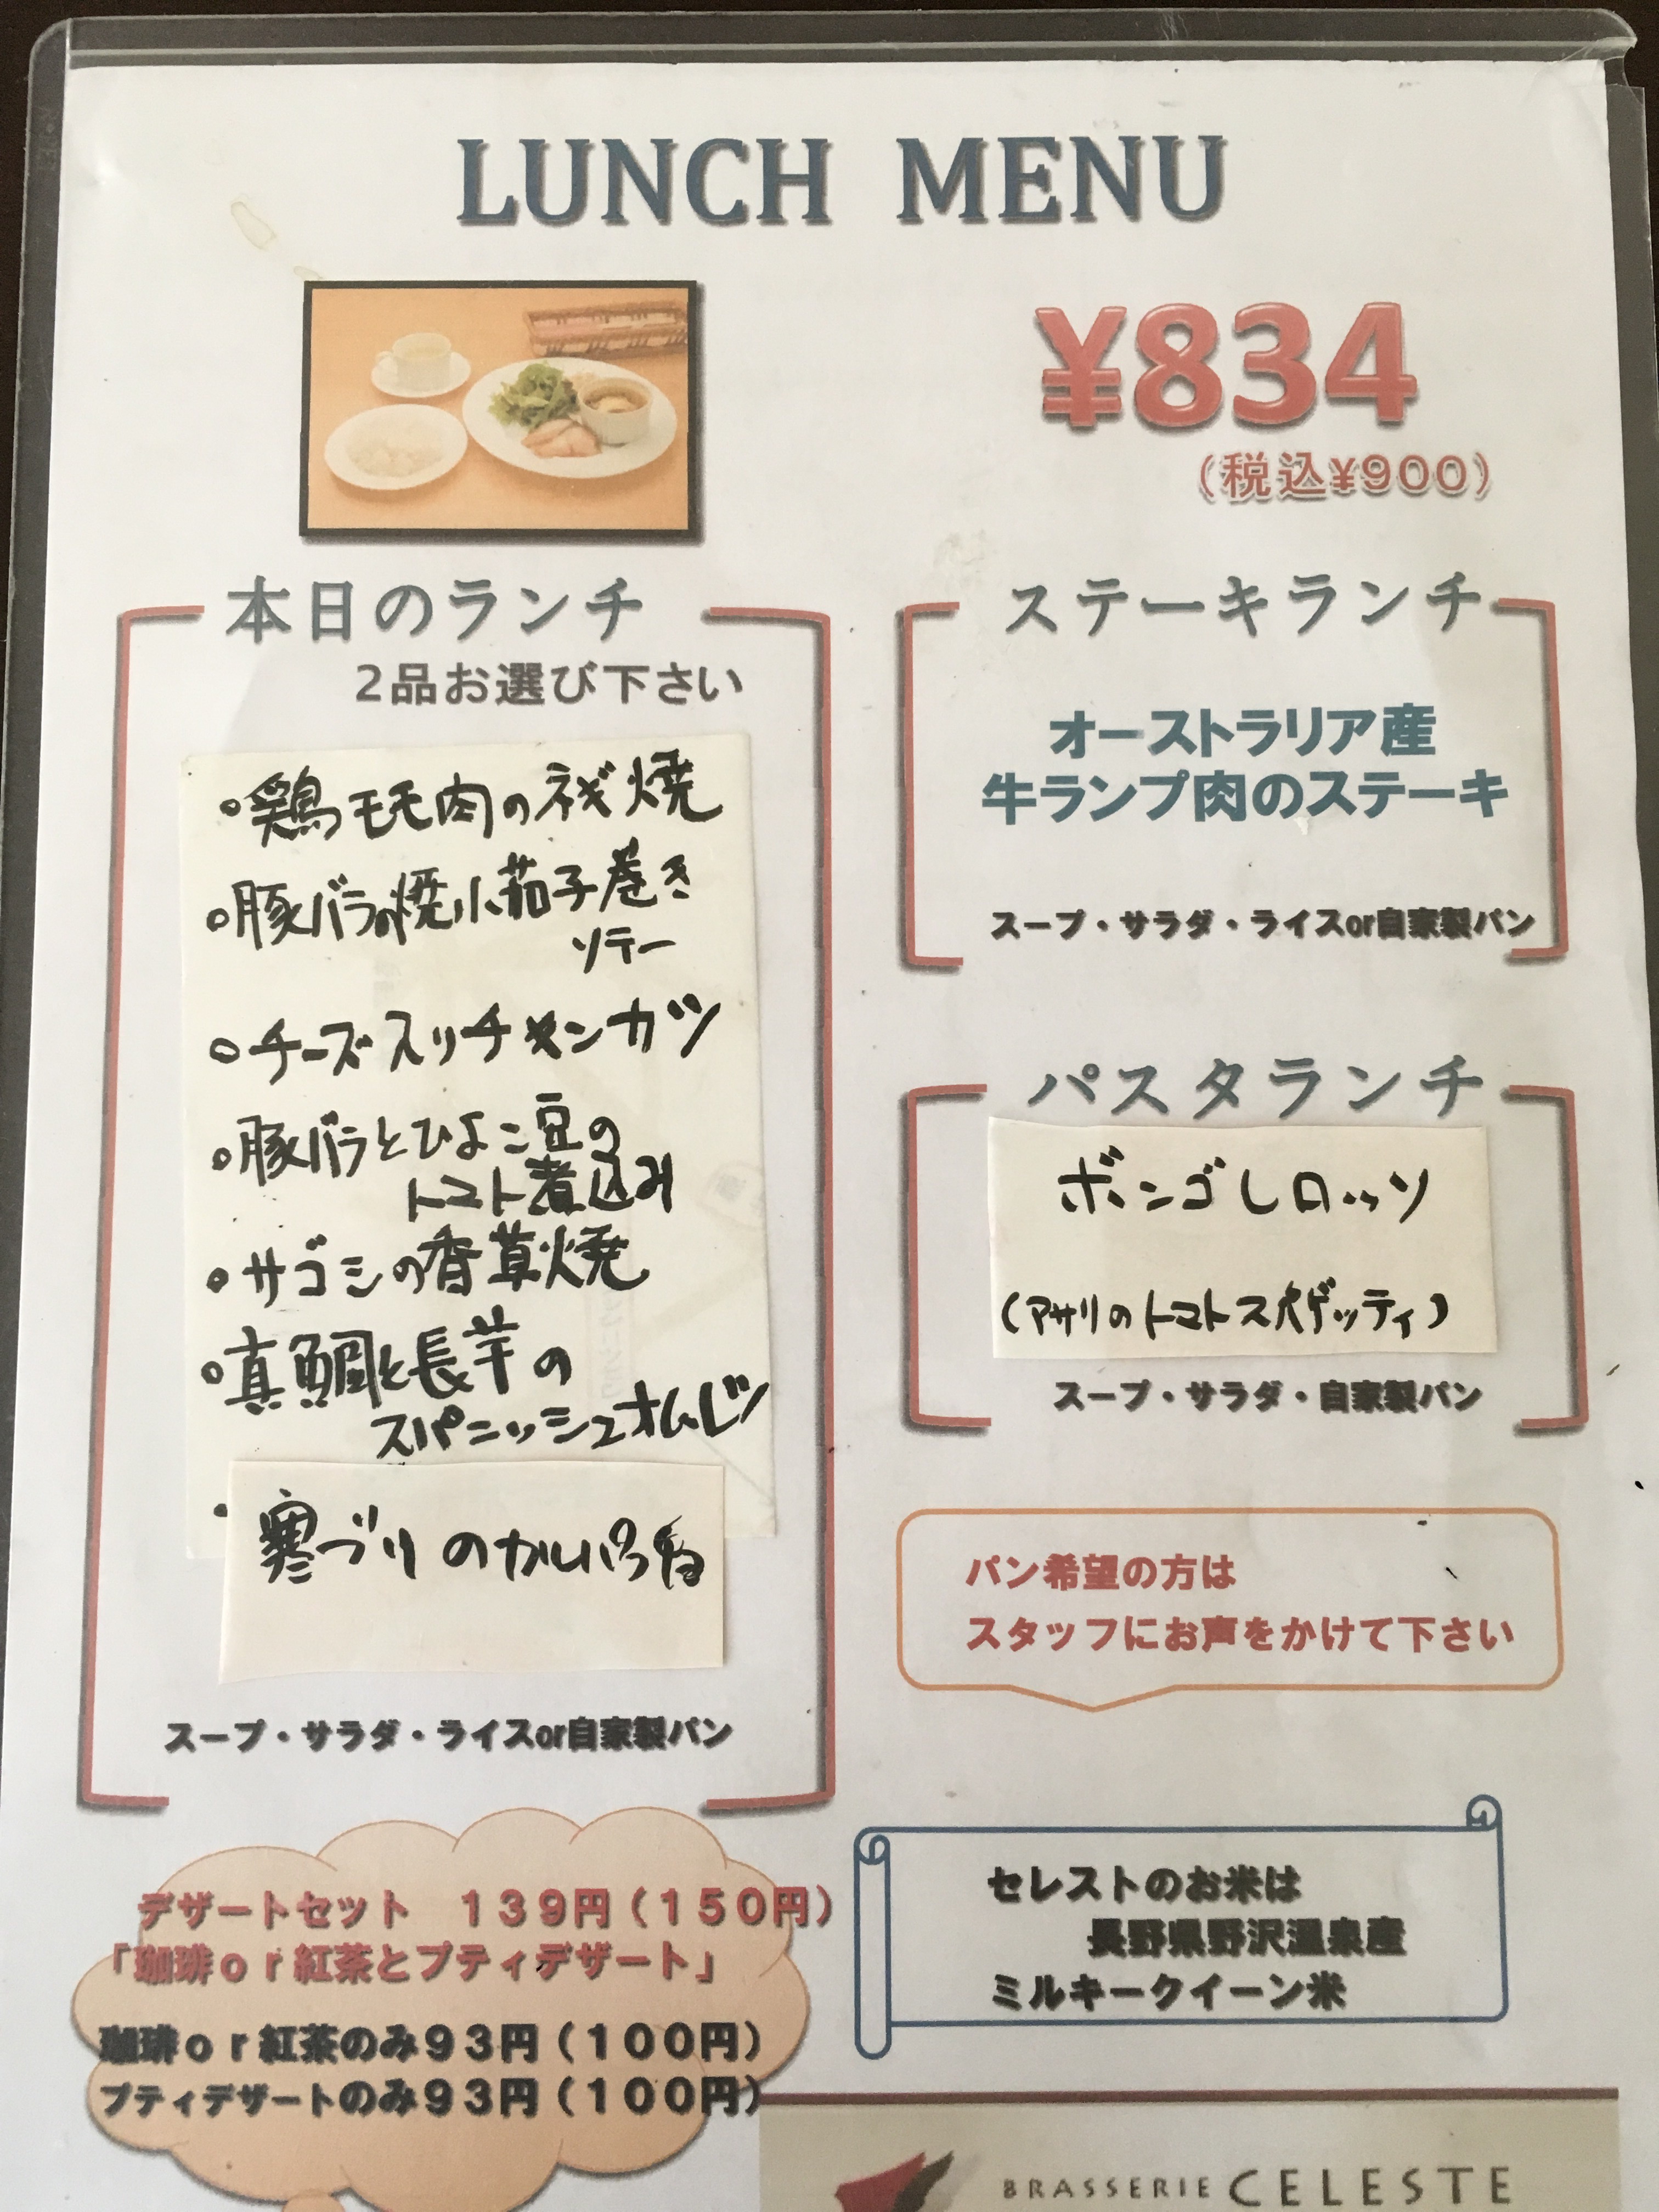 LUNCH MENU
¥834
(税込¥900)
本日のランチ
2品お選び下さい
・鶏モモ肉のネギ焼
・豚バラの焼小茄子巻き
ソテー
・チーズスリチキンカツ
・豚バラとひよこ豆の
トマト煮込み
・サゴシの香草焼
・真鯛と長芋の
スパニッシュオムレツ
・寒ブリのカルパッチョ
スープ・サラダ・ライスor自家製パン
ステーキランチ
オーストラリア産
牛ランプ肉のステーキ
スープ・サラダ・ライスor自家製パン
パスタランチ
ボンゴレロッソ
(アサリのトマトスパゲッティ)
スープ・サラダ・自家製パン
パン希望の方は
スタッフにお声をかけて下さい
デザートセット 139円(150円)
「珈琲or紅茶とプティデザート」
珈琲or紅茶のみ93円(100円)
プティデザートのみ93円(100円)
セレストのお米は
長野県野沢温泉産
ミルキークイーン米
BRASSERIE CELESTE